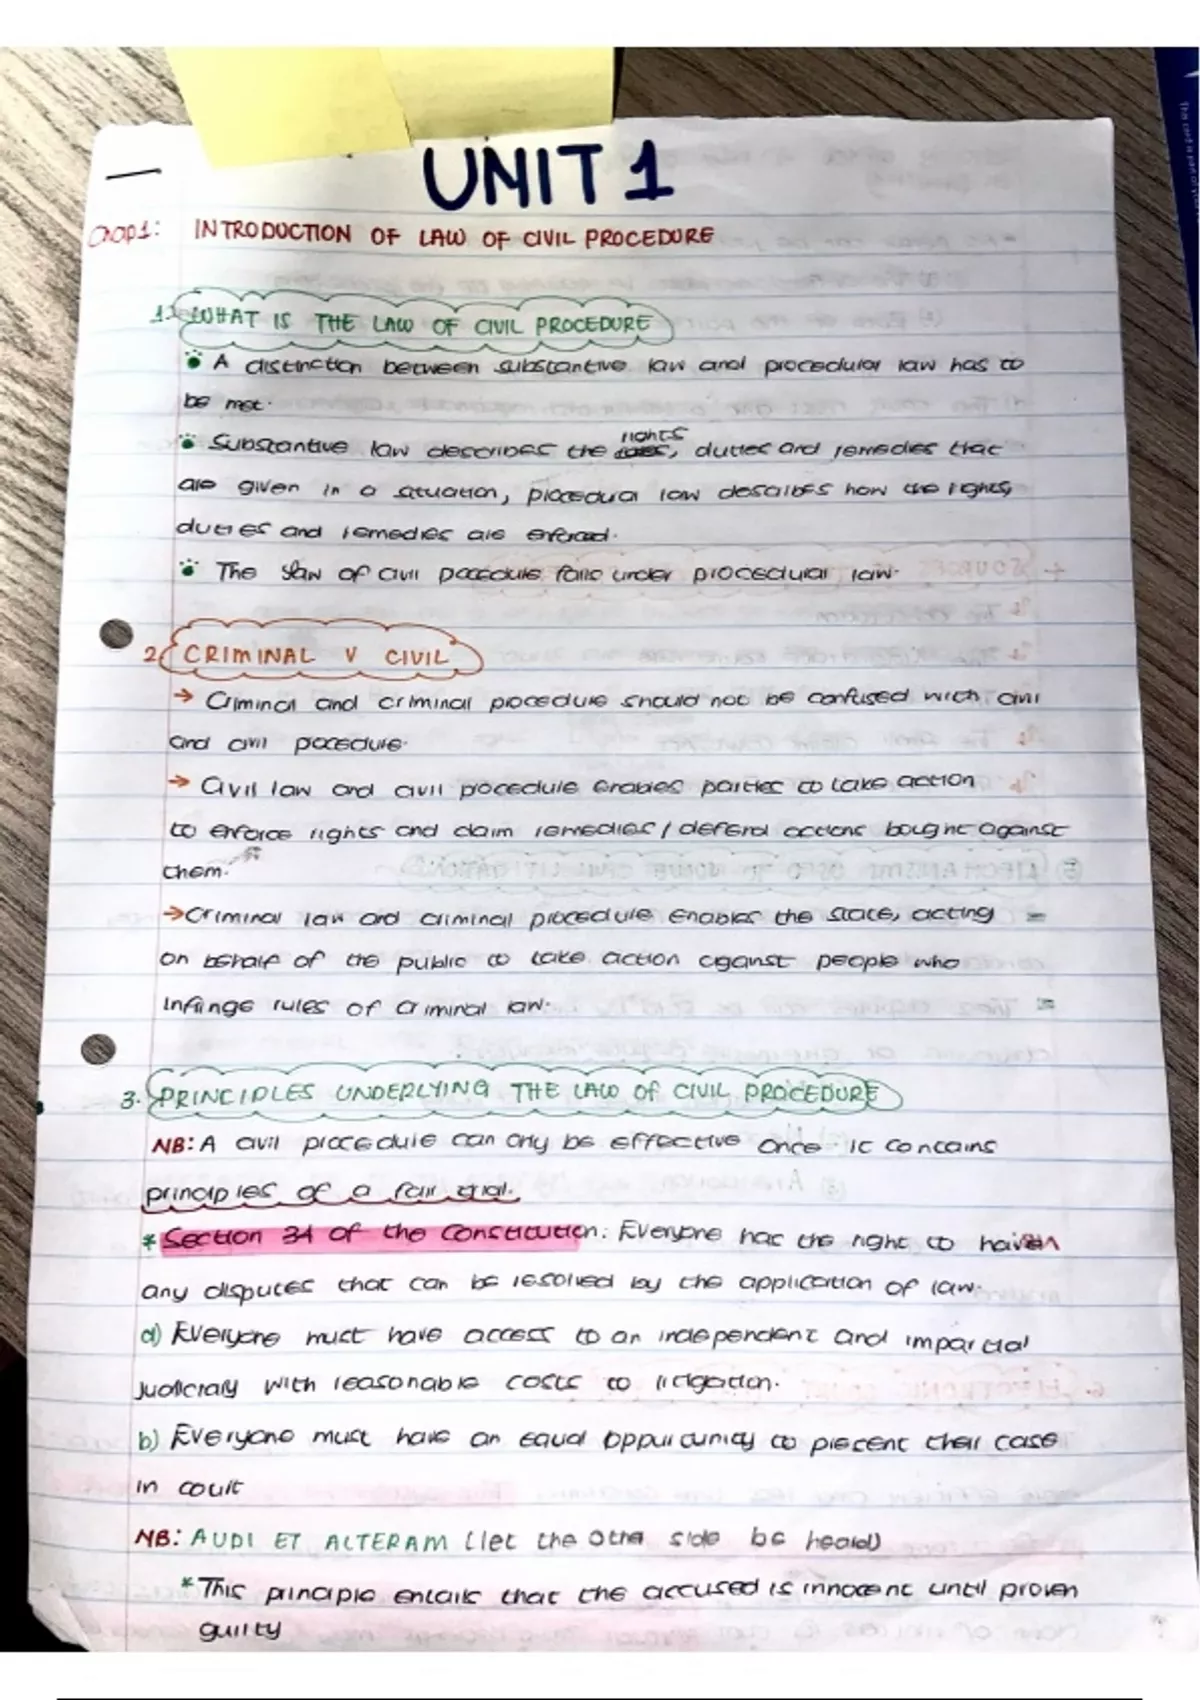 UNIT 1
Chap1: INTRODUCTION OF LAW OF CIVIL PROCEDURE
1. WHAT IS THE LAW OF CIVIL PROCEDURE
A distinction between substantive law and procedural law has to
be met.
rights
Substantive law describes the , duties and remedies that
are given in a situation, procedural law describes how the rights,
duties and remedies are enforced.
The law of civil procedure falls under procedural law.
2. CRIMINAL V CIVIL
→ Criminal and criminal procedure should not be confused with civil
and civil procedure.
→ Civil law and civil procedure enables parties to take action
to enforce rights and claim remedies / defend actions bought against
them.
→ Criminal law and criminal procedure enables the state, acting
on behalf of the public to take action against people who
infringe rules of criminal law.
3. PRINCIPLES UNDERLYING THE LAW OF CIVIL PROCEDURE
NB: A civil procedure can only be effective once it contains
principles of a fair trial.
* Section 34 of the Constitution: Everyone has the right to
any disputes that can be resolved by the application of law.
a) Everyone must have access to an independent and impartial
judiciary with reasonable costs to litigation.
b) Everyone must have an equal opportunity to present their case
in court
NB: AUDI ET ALTERAM (let the other side be heard)
* This principle entails that the accused is innocent until proven
guilty